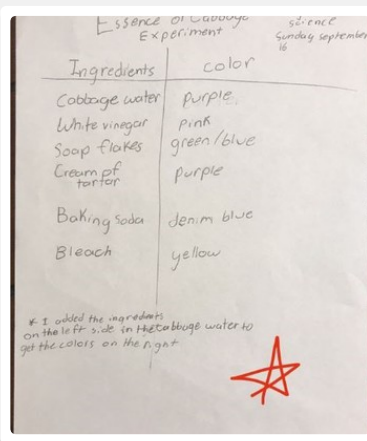 Essence of Cabbage
Experiment
science
Sunday september
16
Ingredients color
Cabbage water purple
White vinegar pink
Soap flakes green/blue
Cream of
tartar purple
Baking soda denim blue
Bleach yellow
* I added the ingredients
on the left side in the cabbage water to
get the colors on the right